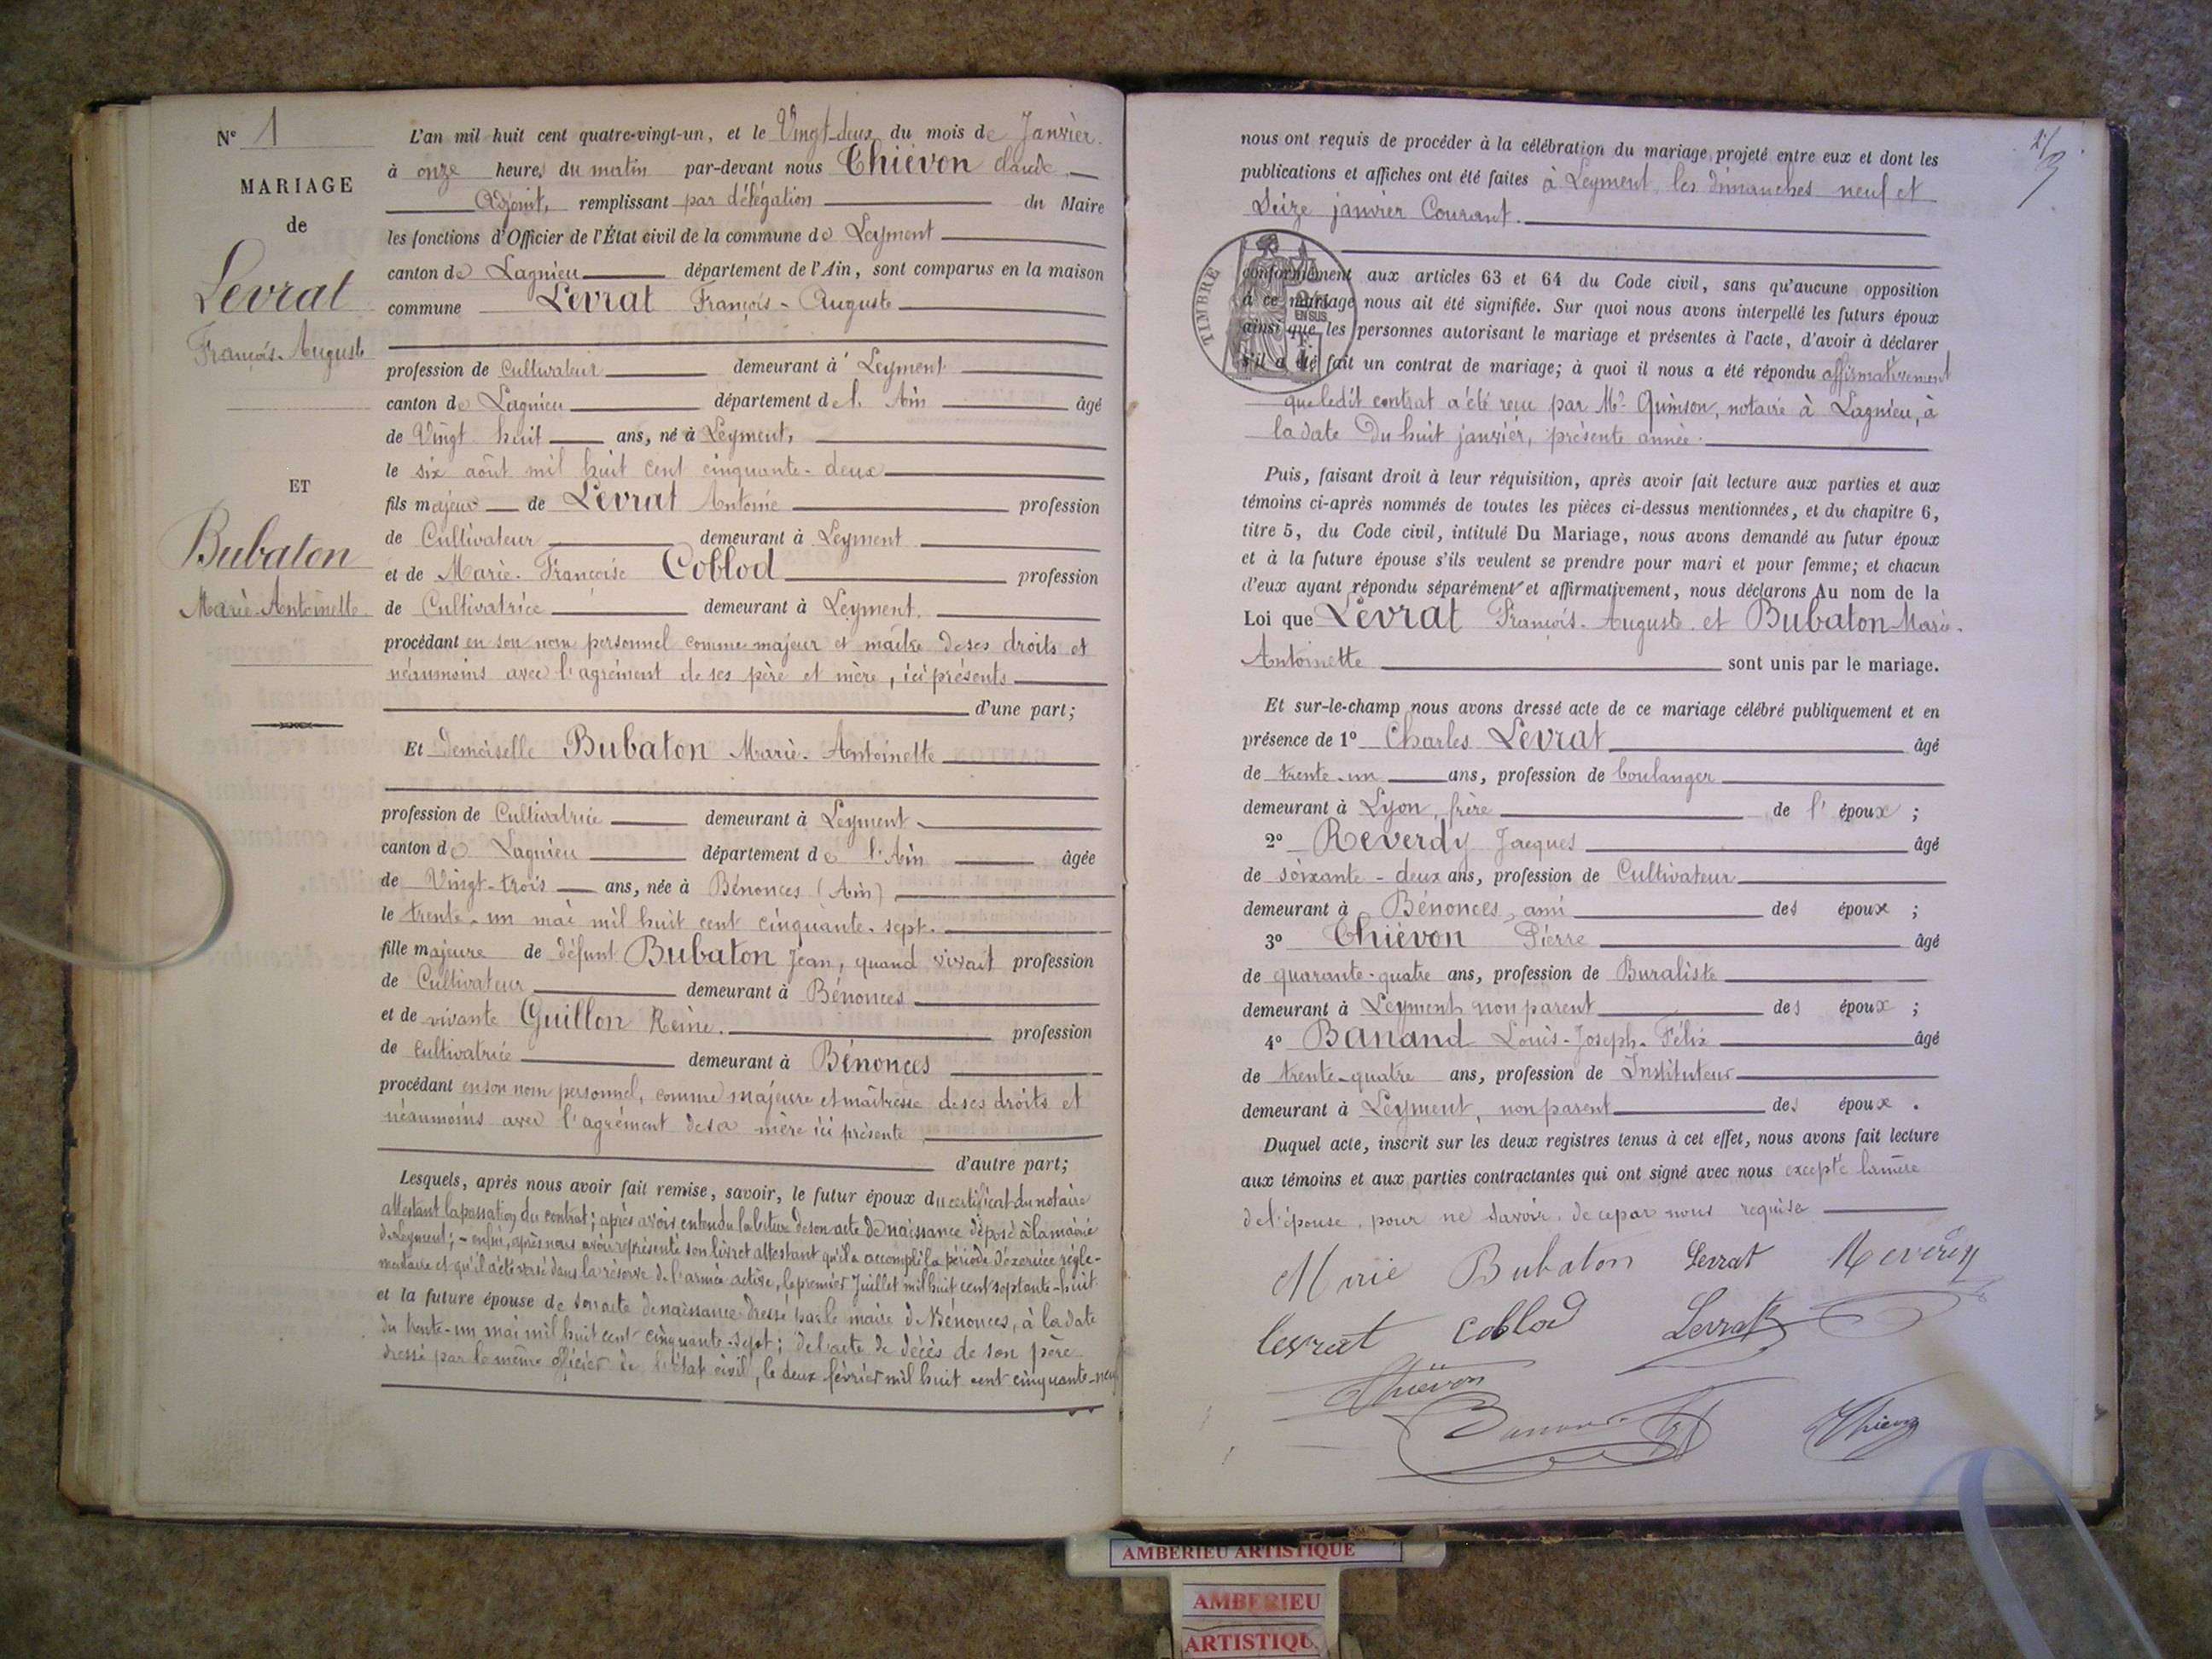 N° 1
MARIAGE
de
Levrat
François-Auguste
ET
Bubaton
Marie-Antoinette
L'an mil huit cent quatre-vingt-un, et le Vingt-deux du mois de Janvier.
à onze heures du matin par-devant nous Thiévon Claude
Adjoint, remplissant par délégation du Maire
les fonctions d'Officier de l'État civil de la commune de Leyment
canton de Lagnieu département de l'Ain, sont comparus en la maison
commune Levrat François-Auguste
profession de Cultivateur demeurant à Leyment
canton de Lagnieu département de l'Ain âgé
de Vingt huit ans, né à Leyment,
le six août mil huit cent cinquante-deux
fils majeur de Levrat Antoine profession
de Cultivateur demeurant à Leyment
et de Marie-Françoise Coblod profession
de Cultivatrice demeurant à Leyment.
procédant en son nom personnel comme majeur et maître de ses droits et
néanmoins avec l'agrément de ses père et mère, ici présents
d'une part;
Et Demoiselle Bubaton Marie-Antoinette
profession de Cultivatrice demeurant à Leyment
canton de Lagnieu département de l'Ain âgée
de Vingt-trois ans, née à Bénonces (Ain)
le trente-un mai mil huit cent cinquante-sept.
fille majeure de défunt Bubaton Jean, quand vivait profession
de Cultivateur demeurant à Bénonces
et de vivante Guillon Reine. profession
de Cultivatrice demeurant à Bénonces
procédant en son nom personnel, comme majeure et maîtresse de ses droits et
néanmoins avec l'agrément de sa mère ici présente
d'autre part;
Lesquels, après nous avoir fait remise, savoir, le futur époux du certificat du notaire
attestant la passation du contrat; après avoir entendu la lecture de son acte de naissance déposé à la mairie
de Leyment; - enfin, après nous avoir représenté son livret attestant qu'il a accompli la période d'exercice régle-
mentaire et qu'il a été versé dans la réserve de l'armée active, le premier Juillet mil huit cent septante-huit.
et la future épouse de son acte de naissance dressé par le maire de Bénonces, à la date
du trente-un mai mil huit cent cinquante-sept; de l'acte de décès de son père
dressé par le même officier de l'état civil, le deux février mil huit cent cinquante-neuf
nous ont requis de procéder à la célébration du mariage projeté entre eux et dont les
publications et affiches ont été faites à Leyment, les dimanches neuf et
Seize janvier Courant.
TIMBRE
EN SUS
conformément aux articles 63 et 64 du Code civil, sans qu'aucune opposition
à ce mariage nous ait été signifiée. Sur quoi nous avons interpellé les futurs époux
ainsi que les personnes autorisant le mariage et présentes à l'acte, d'avoir à déclarer
s'il a été fait un contrat de mariage; à quoi il nous a été répondu affirmativement
que ledit contrat a été reçu par Me Quinson, notaire à Lagnieu, à
la date du huit janvier, présente année.
Puis, faisant droit à leur réquisition, après avoir fait lecture aux parties et aux
témoins ci-après nommés de toutes les pièces ci-dessus mentionnées, et du chapitre 6,
titre 5, du Code civil, intitulé Du Mariage, nous avons demandé au futur époux
et à la future épouse s'ils veulent se prendre pour mari et pour femme; et chacun
d'eux ayant répondu séparément et affirmativement, nous déclarons Au nom de la
Loi que Levrat François-Auguste et Bubaton Marie-
Antoinette sont unis par le mariage.
Et sur-le-champ nous avons dressé acte de ce mariage célébré publiquement et en
présence de 1° Charles Levrat âgé
de trente-un ans, profession de boulanger
demeurant à Lyon, frère de l'époux;
2° Reverdy Jacques âgé
de soixante-deux ans, profession de Cultivateur
demeurant à Bénonces, ami des époux;
3° Thiévon Pierre âgé
de quarante-quatre ans, profession de Buraliste
demeurant à Leyment, non parent des époux;
4° Banand Louis-Joseph-Félix âgé
de trente-quatre ans, profession de Instituteur
demeurant à Leyment, non parent des époux.
Duquel acte, inscrit sur les deux registres tenus à cet effet, nous avons fait lecture
aux témoins et aux parties contractantes qui ont signé avec nous excepté la mère
de l'épouse, pour ne savoir, de ce par nous requise
Marie Bubaton Levrat Reverdy
levrat Coblod Levrat
Thiévon
Banand Thievon
AMBERIEU ARTISTIQUE
AMBERIEU
ARTISTIQU